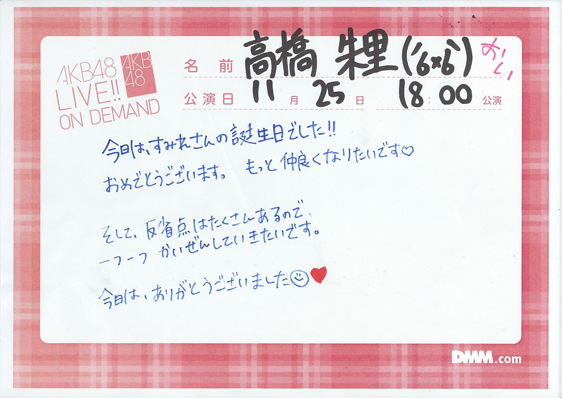 AKB48
LIVE!!
ON DEMAND
AKB
48
名 前 高橋 朱里('6x6')
公演日 11 月 25 日 18:00 公演
今日は、すみれさんの誕生日でした!!
おめでとうございます。 もっと仲良くなりたいです♡
そして、反省点はたくさんあるので、
一つ一つ かいぜんしていきたいです。
今日は、ありがとうございました☺♥
DMM.com